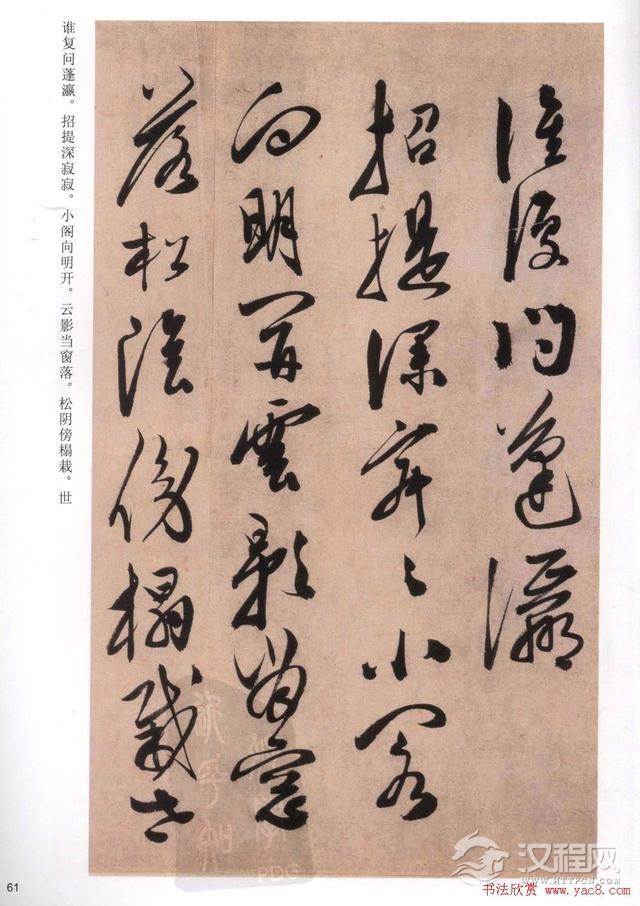 誰復問蓬瀛
招提深寂〻小閣
向明開雲影當窗
落松陰傍榻栽世
谁复问蓬瀛。招提深寂寂。小阁向明开。云影当窗落。松阴傍榻栽。世
61
PDG
汉程网
HTTPCN.COM
书法欣赏 www.yac8.com